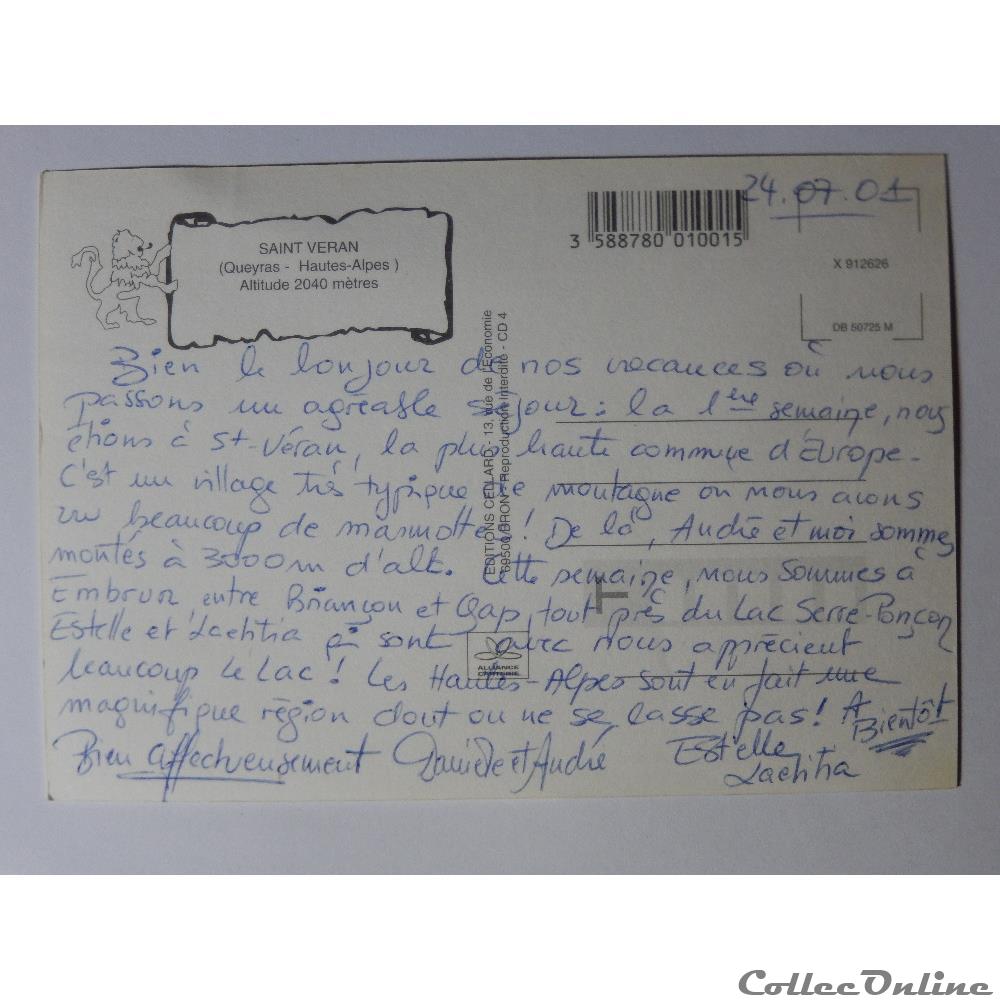 24.07.01
3 588780 010015
X 912626
DB 50725 M
SAINT VERAN
(Queyras - Hautes-Alpes )
Altitude 2040 mètres
EDITIONS CELLARD - 13, rue de l'Economie
69500 BRON - Reproduction interdite - CD 4
ALLIANCE
CARTERIE
Bien le bonjour de nos vacances où nous
passons un agréable séjour : la 1ère semaine, nous
étions à St-Véran, la plus haute commune d'Europe.
C'est un village très typique de montagne où nous avons
vu beaucoup de marmottes ! De là, André et moi sommes
montés à 3000m d'alt. Cette semaine, nous sommes à
Embrun, entre Briançon et Gap, tout près du Lac Serre-Ponçon
Estelle et Laetitia qui sont avec nous apprécient
beaucoup le Lac ! Les Hautes-Alpes sont en fait une
magnifique région dont on ne se lasse pas ! A
Bientôt
Bien affectueusement Danièle et André Estelle
Laetitia
CollecOnline